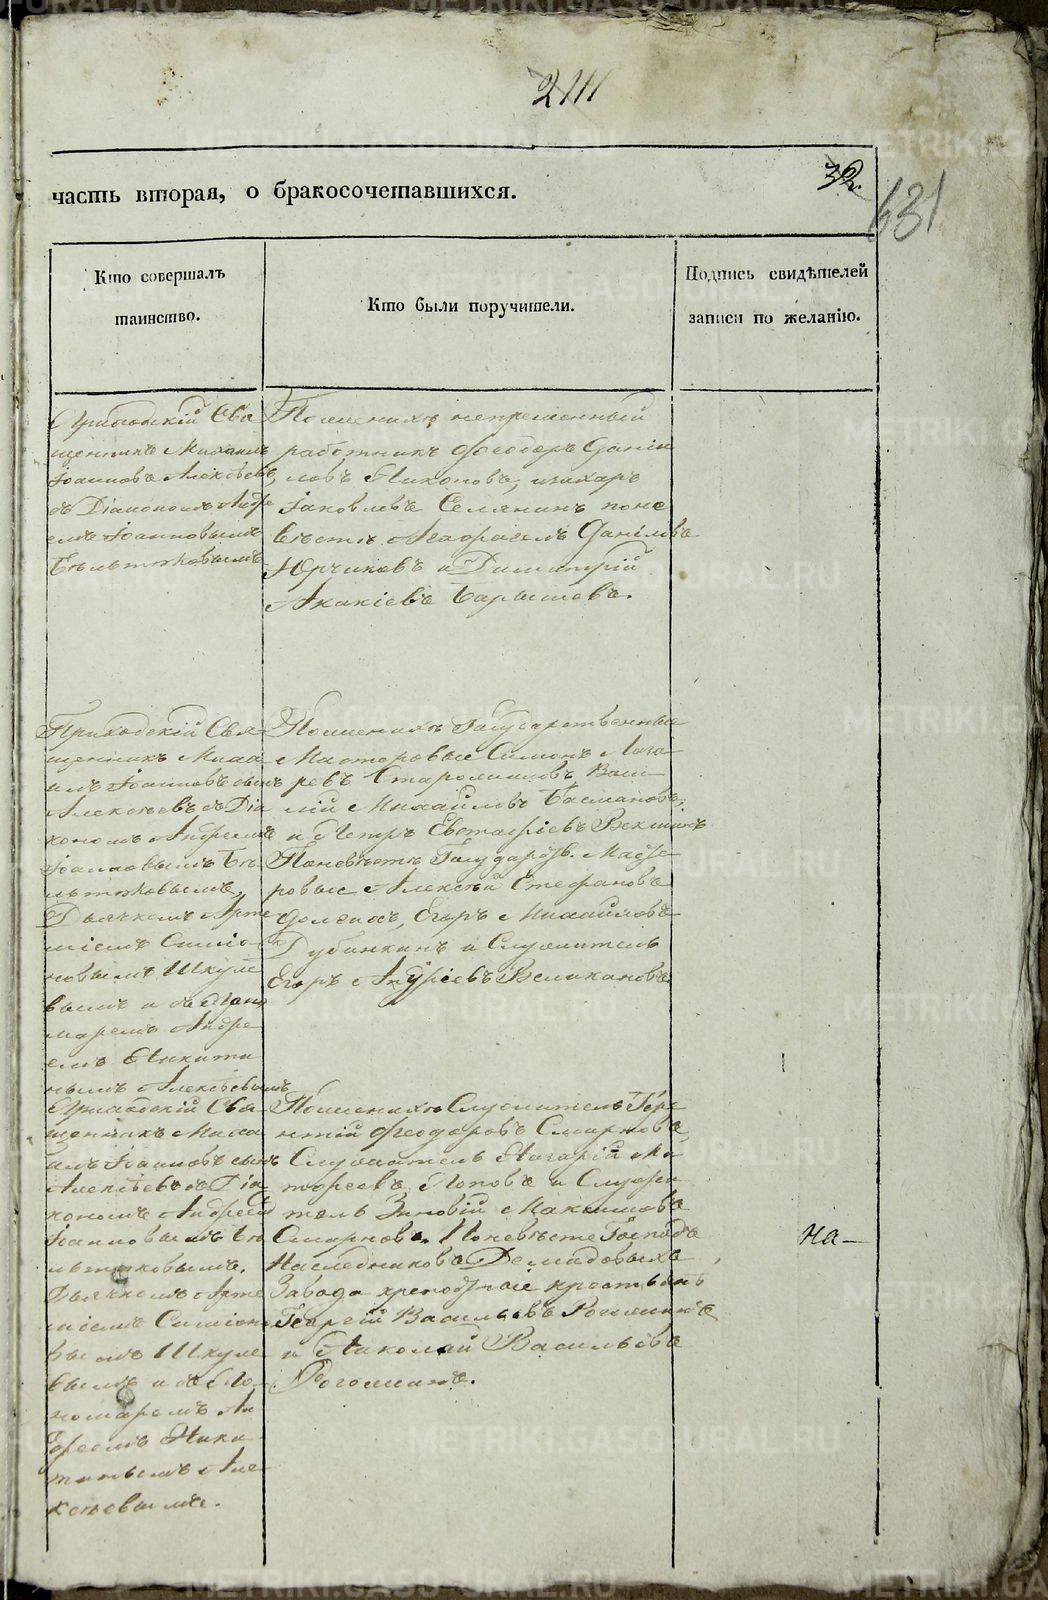 2111
часть вторая, о бракосочетавшихся.
32.
631
Кто совершалъ
таинство.
Кто были поручители.
Подпись свидѣтелей
записи по желанію.
Приходскій Свя
щенникъ Михаилъ
Іоанновъ Алексѣевъ,
съ Діакономъ Андре
емъ Іоанновымъ
Бѣльтюковымъ
По женихѣ непременный
работникъ Ѳеодоръ Даніи
ловъ Никоновъ, и
Яковлевъ Селянинъ по не
вѣстѣ Даніиловъ
Юрчиковъ и Димитрій
Акакіевъ Барышевъ.
Приходскій Свя-
щенникъ Миха
илъ Іоанновъ сынъ
Алексѣевъ съ Діа
кономъ Андреемъ
Іоанновымъ Бѣ
льтюковымъ,
Дьячкомъ Арте
міемъ Симео
новымъ Шкуле
вымъ и съ Поно
маремъ Андре
емъ Никити
нымъ Алексѣевымъ
По женихѣ Государственные
Мастеровые Симонъ Лаза
ревъ Старожиловъ, Васи
лій Михайловъ Басмановъ,
и Петръ Евстафіевъ Векшинъ
По невѣстѣ Государств. Масте
ровые Алексѣй Стефановъ
Долгихъ, Егоръ Михайловъ
Дубинкинъ и Служитель
Егоръ Андреевъ Великановъ.
Приходскій Свя-
щенникъ Миха
илъ Іоанновъ сынъ
Алексѣевъ съ Діа
кономъ Андреемъ
Іоанновымъ Бѣ
льтюковымъ,
Дьячкомъ Арте
міемъ Симеоно
вымъ Шкуле
вымъ и съ По-
номаремъ Ан
дреемъ Ники
тинымъ Але
ксѣевымъ.
По женихѣ Служитель Тере
нтій Ѳеодоровъ Смирновъ,
Служитель Назарій Ма
тфеевъ Поповъ и Служи
тель Зиновій Максимовъ
Смирновъ. По невѣсте Господъ
Наследниковъ Демидовыхъ
Завода крепостные крестьяне
Георгій Васильевъ Рогожинъ
и Николай Васильевъ
Рогожинъ.
На-